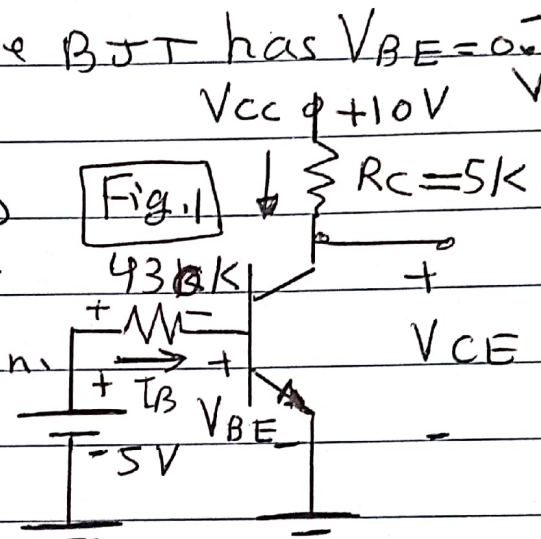 BJT has VBE = 0.
VCC +10V
Fig.1
RC=5K
430K
+ -
+
n.
+ IB +
VCE
VBE
-
- 5V